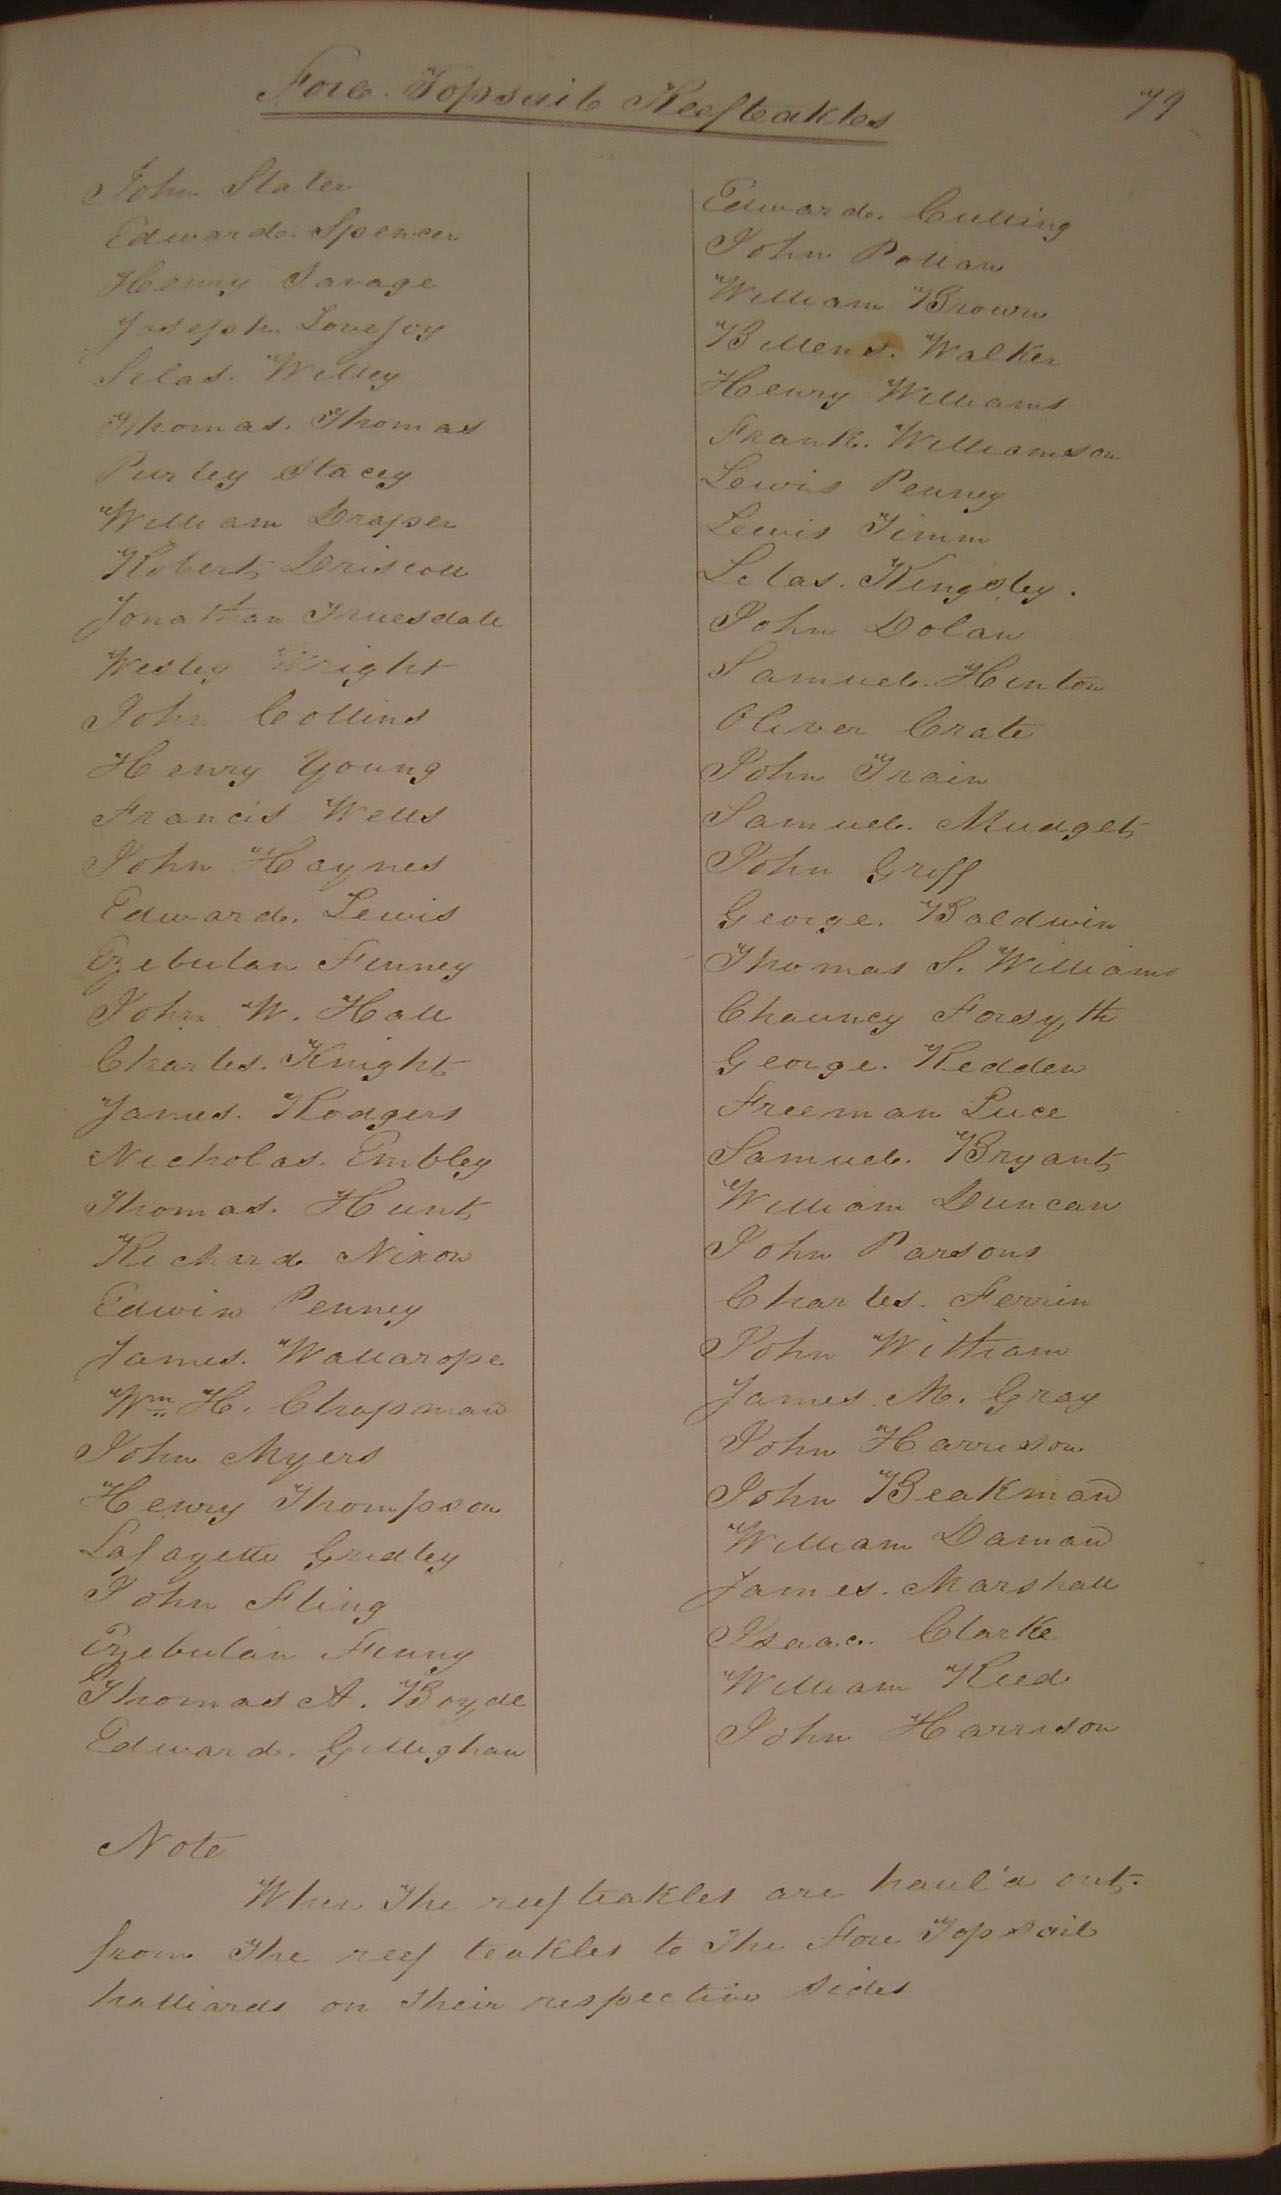 Fore Topsail Reefteakles
79
John Slater
Edward Spencer
Henry Savage
Joseph Lovejoy
Silas Willey
Thomas Thomas
Purley Stacey
William Draper
Robert Driscoll
Jonathan Truesdale
Wesley Wright
John Collins
Henry Young
Francis Wells
John Haynes
Edward Lewis
Ezebulan Finney
John W. Hall
Charles Knight
James Rodgers
Nicholas Embley
Thomas Hunt
Richard Nixon
Edwin Penney
James Wallarope
Wm H. Chapman
John Myers
Henry Thompson
Lafayette Gridley
John Fling
Ezebulan Finny
Thomas A. Boyde
Edward Gillighan
Edward Culling
John Pollan
William Brown
Billens Walker
Henry Williams
Frank Williamson
Lewis Penney
Lewis Timm
Silas Kingsley.
John Dolan
Samuel Hinton
Oliver Crate
John Train
Samuel Mudget
John Greff
George Baldwin
Thomas S. Williams
Chauncy Forsyth
George Redden
Freeman Luce
Samuel Bryant
William Duncan
John Parsons
Charles Ferrin
John Witham
James M. Gray
John Harrison
John Beakman
William Daman
James Marshall
Isaac Clarke
William Reed
John Harrison
Note
When The reefteakles are haul'd out.
from The reef teakles to The Fore Topsail
halliards on Their respective sides